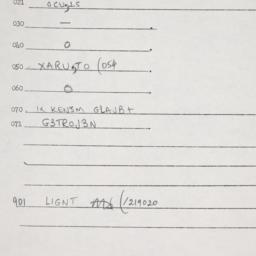 021 OCU,LS
030 —
040 O
050 XARU,TO (054
060 O
070 IL KENSM GLAJB+
072 G3TROJ3N
901 LIGNT (/219020